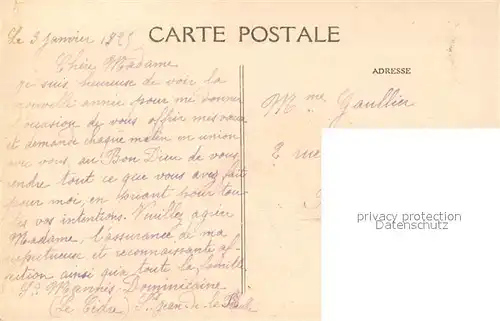 Le 3 janvier 1925
CARTE POSTALE
ADRESSE
Chère Madame
je suis heureuse de voir la
nouvelle année pour me donner
occasion de vous offrir mes vœux
et demande chaque matin en union
avec vous au Bon Dieu de vous
rendre tout ce que vous avez fait
pour moi, en priant pour tou
tes vos intentions. Veuillez agréer
Madame, l'assurance de ma
respectueuse et reconnaissante af
fection ainsi qu'a toute la famille
Sr Mannès Dominicaine
(Le Cèdre) St Jean-de-la
Mme Gaullier
2 rue
privacy protection